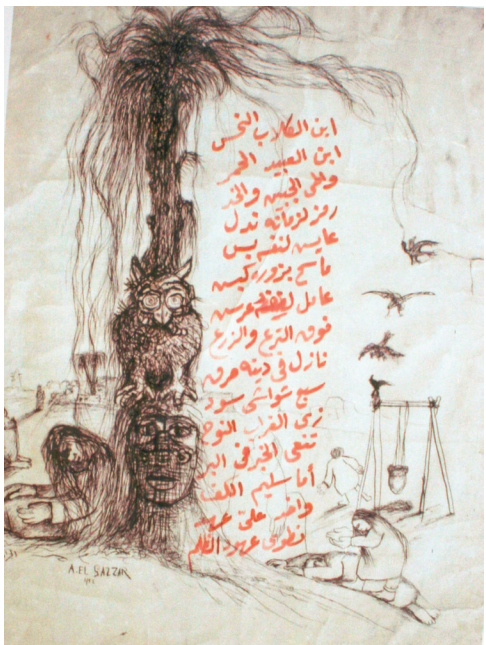 ابن الكلاب النحس
ابن العبيد الحمر
والخد
رمز لزمانه ندل
عايش لنفسه بس
ماسح بزوره كيس
عامل عرسن
فوق الترع والزرع
نازل في ديته حرق
سبع شواشي سود
زي الغراب النوحي
تنفي الخير في البر
أما سليم الكف
واقف على عهد
نطوى عهود الظلم
A. EL GAZZAR